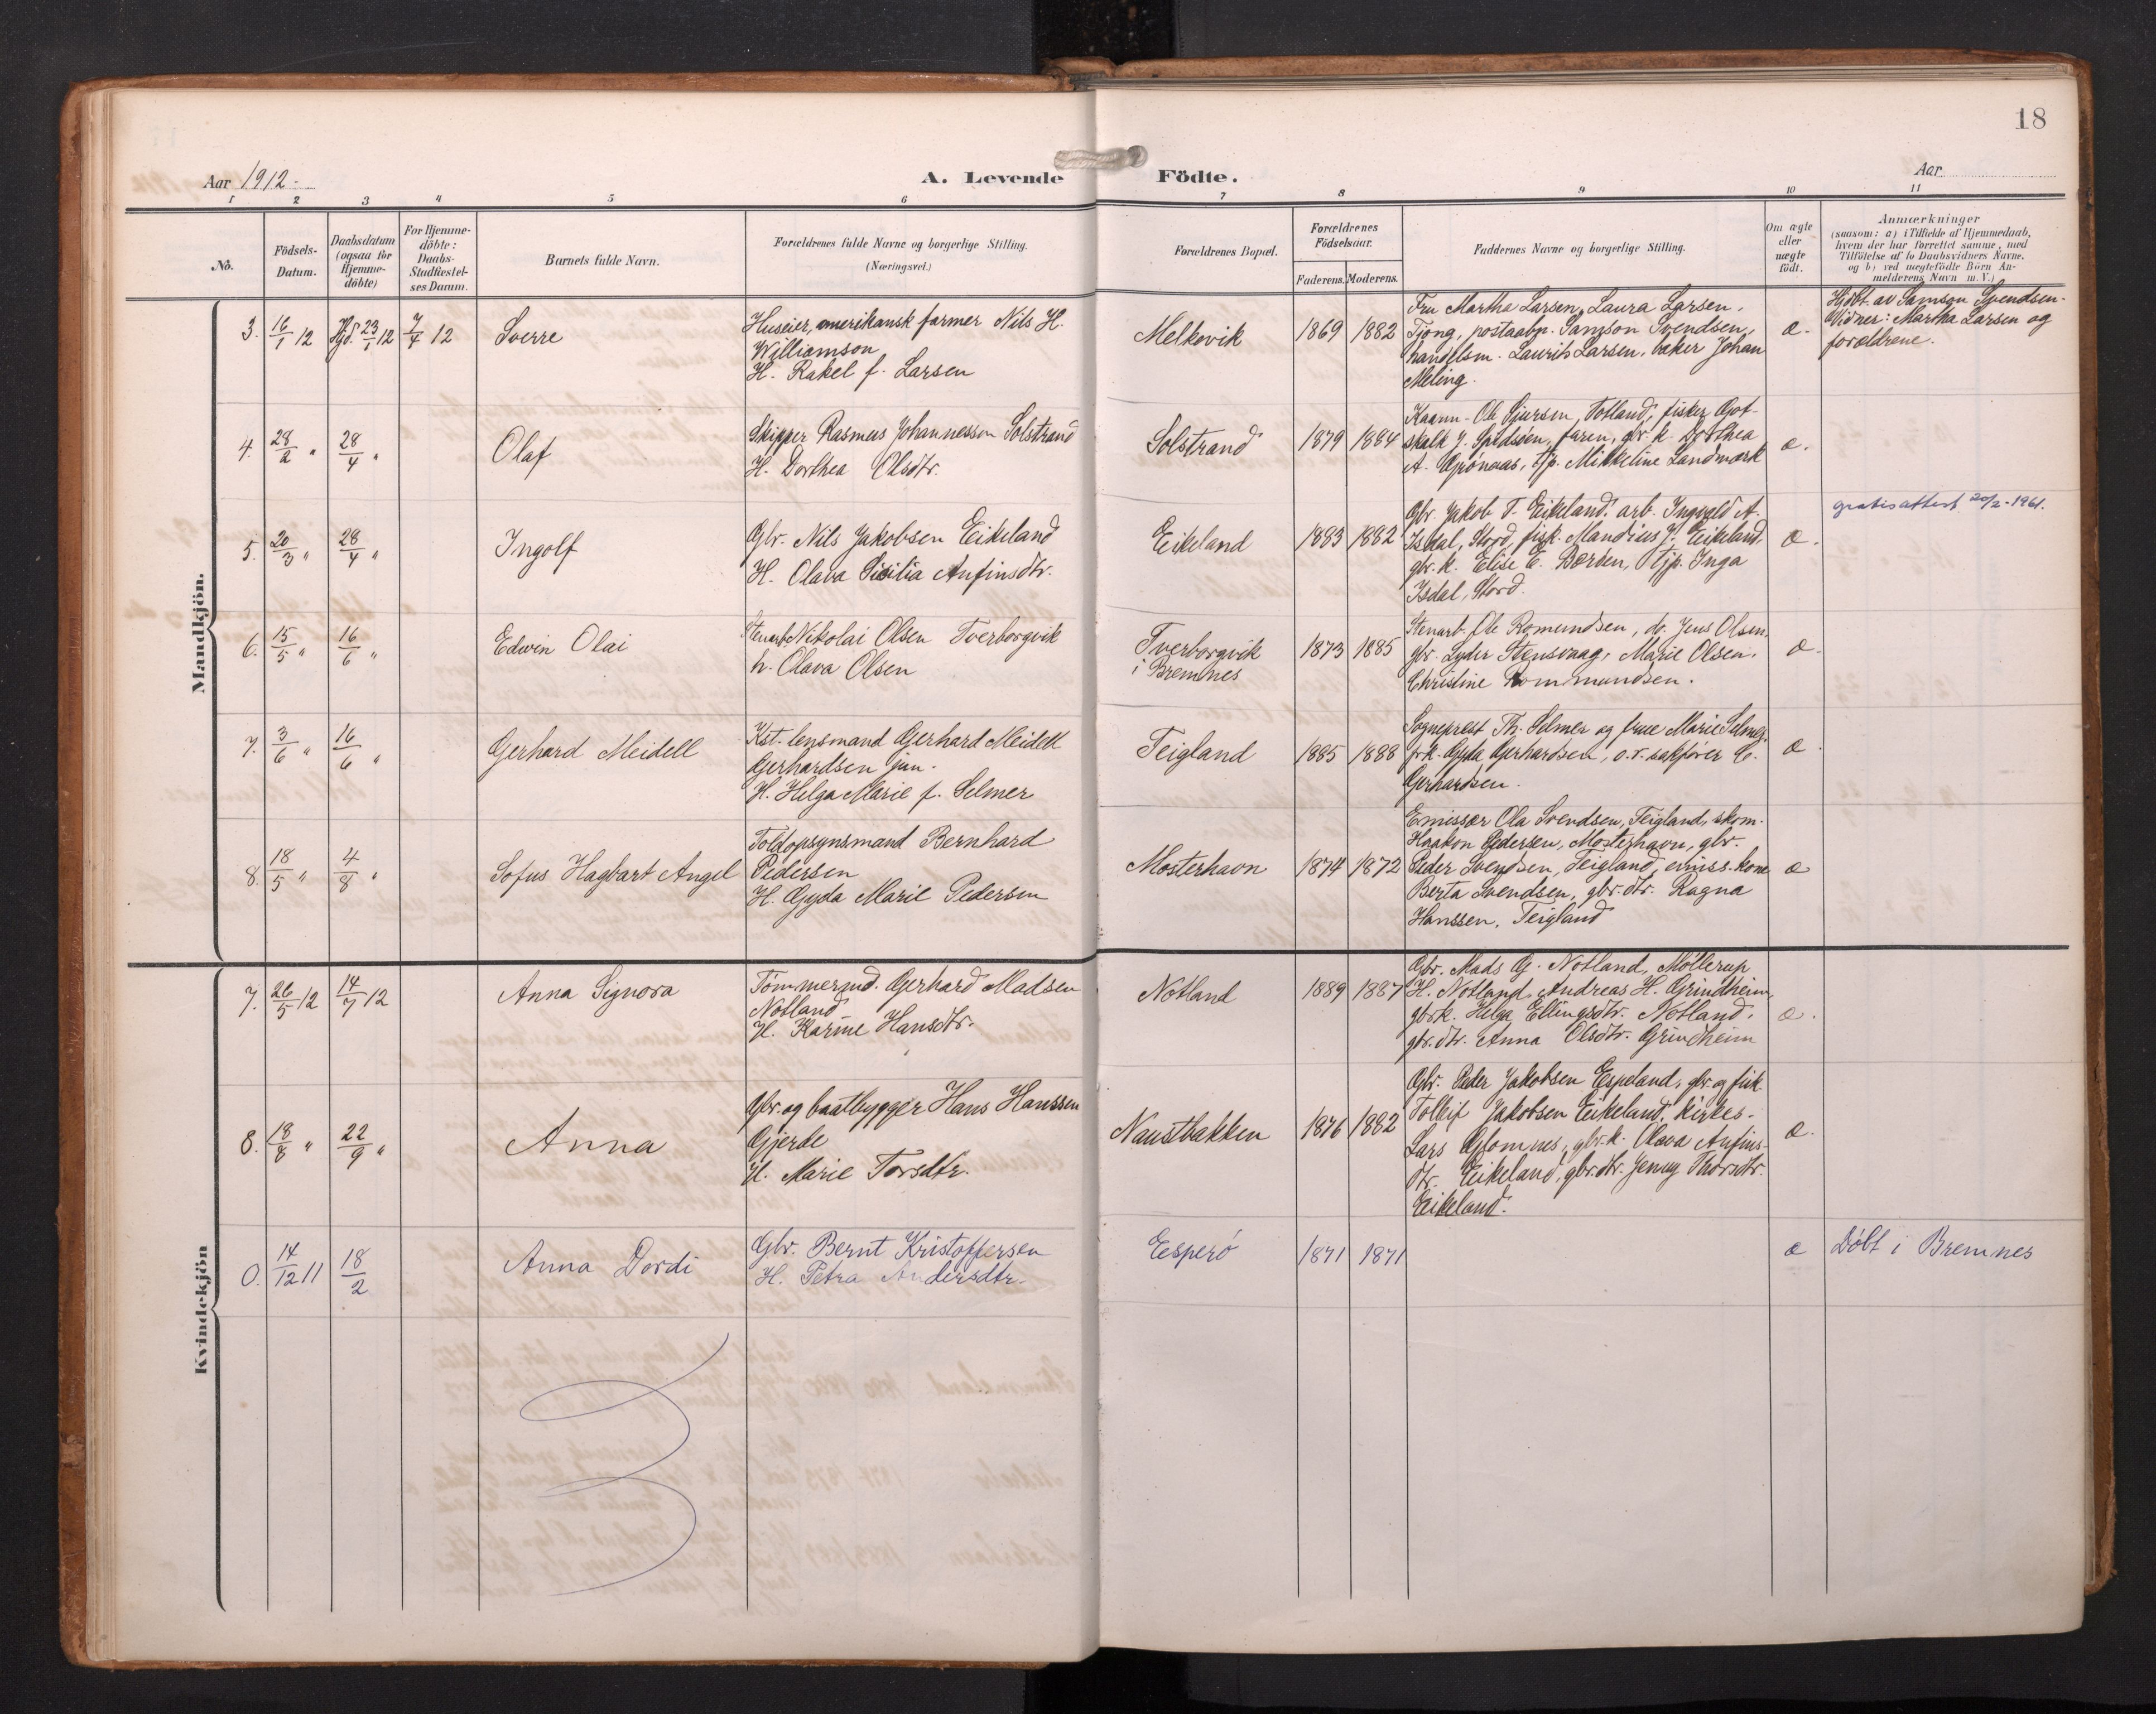 18
Aar 1912.
A. Levende
Födte.
Aar
1 2 3 4 5 6 7 8 9 10 11
No.
Födsels-
Datum.
Daabsdatum
(ogsaa for
Hjemme-
döbte)
For Hjemme-
döbte:
Daabs-
Stadfæstel-
ses Datum.
Barnets fulde Navn.
Forældrenes fulde Navne og borgerlige Stilling.
(Næringsvei.)
Forældrenes Bopæl.
Forældrenes
Födselsaar.
Faderens. Moderens.
Faddernes Navne og borgerlige Stilling.
Om ægte
eller
uægte
födt.
Anmærkninger
(saasom: a) i Tilfælde af Hjemmedaab,
hvem der har forrettet samme, med
Tilföielse af to Daabsvidners Navne.
og b) ved uægtefödte Börn An-
melderens Navn m. V.)
Mandkjön.
3. 16/1 12 Hjd. 23/1 12 7/4 12
Sverre
Huseier, amerikansk farmer Nils H.
Williamson
H. Rakel f. Larsen
Melkevik
1869 1882
Fru Martha Larsen, Laura Larsen.
Tjong, postaabn. Samson Svendsen,
handelsm. Laurits Larsen, baker Johan
Meling.
æ.
Hjdbt. av Samson Svendsen.
Vidner: Martha Larsen og
forældrene.
4. 28/2 " 28/4 "
Olaf
Skipper Rasmus Johannessen Solstrand
H. Dorthea Olsdtr.
Solstrand
1879 1884
Ole Sjursen, Totland, fisker Got-
skalk J. faren, gbr. k. Dorthea
A. Grönaas, tjp. Mikkeline Landmark
æ.
5. 20/3 " 28/4 "
Ingolf
Gbr. Nils Jakobsen Eikeland
H. Olava Sisilia Anfinsdtr.
Eikeland
1883 1882
Gbr. Jakob T. Eikeland, arb. Ingvald A.
Isdal, Stord, fisk. Mandius J. Eikeland
gbr. k. Elise E. Börden, tjp. Inga
Isdal, Stord.
æ.
gratisattest 20/2-1961.
6. 15/5 " 16/6 "
Edwin Olai
Stenarb. Nikolai Olsen Tverborgvik
h. Olava Olsen
Tverborgvik
i Bremnes
1873 1885
Stenarb. Ole Romundsen, do. Jens Olsen,
gbr. Lyder Stensvaag, Marie Olsen.
Christine Rommundsen.
æ.
7. 3/6 " 16/6 "
Gerhard Meidell
Kst. lensmand Gerhard Meidell
Gerhardsen jun.
H. Helga Marie f. Selmer
Teigland
1885 1888
Sogneprest Th. Selmer og frue Marie Selmer,
frk. Gyda Gerhardsen, o.r. sakförer C.
Gerhardsen.
æ.
8. 18/5 " 4/8 "
Sofus Hagbart Angel
Toldopsynsmand Bernhard
Pedersen
H. Gyda Marie Pedersen
Mosterhavn
1874 1872
Emissær Ola Svendsen, Teigland, skom.
Haakon Pedersen, Mosterhavn, gbr.
Peder Svendsen, Teigland, emiss. kone
Berta Svendsen, gbr. dtr. Ragna
Hanssen, Teigland
æ
Kvindekjön
7. 26/5 12 14/7 12
Anna Signora
Tömmermd. Gerhard Madsen
Notland
H. Karine Hansdtr.
Notland
1889 1887
Gbr. Mads G. Notland, Möllerup
H. Notland, Andreas H. Grindheim,
gbr. k. Helga Ellingsdtr. Notland,
gbr. dtr. Anna Olsdtr. Grindheim
æ.
8. 18/8 " 22/9 "
Anna
Gbr. og baatbygger Hans Hanssen
Gjerde
H. Marie Torsdtr.
Naustbakken
1876 1882
Gbr. Peder Jakobsen Espeland, gbr. og fisk.
Tolleif Jakobsen Eikeland, kirkes.
Lars Glomnes, gbr. k. Olava Anfins-
dtr. Eikeland, gbr. dtr. Jenny Thorsdtr.
Eikeland.
æ.
0. 14/12 11 18/2
Anna Dordi
Gbr. Bernt Kristoffersen
H. Petra Andersdtr.
Esperö
1871 1871
æ
Döbt i Bremnes